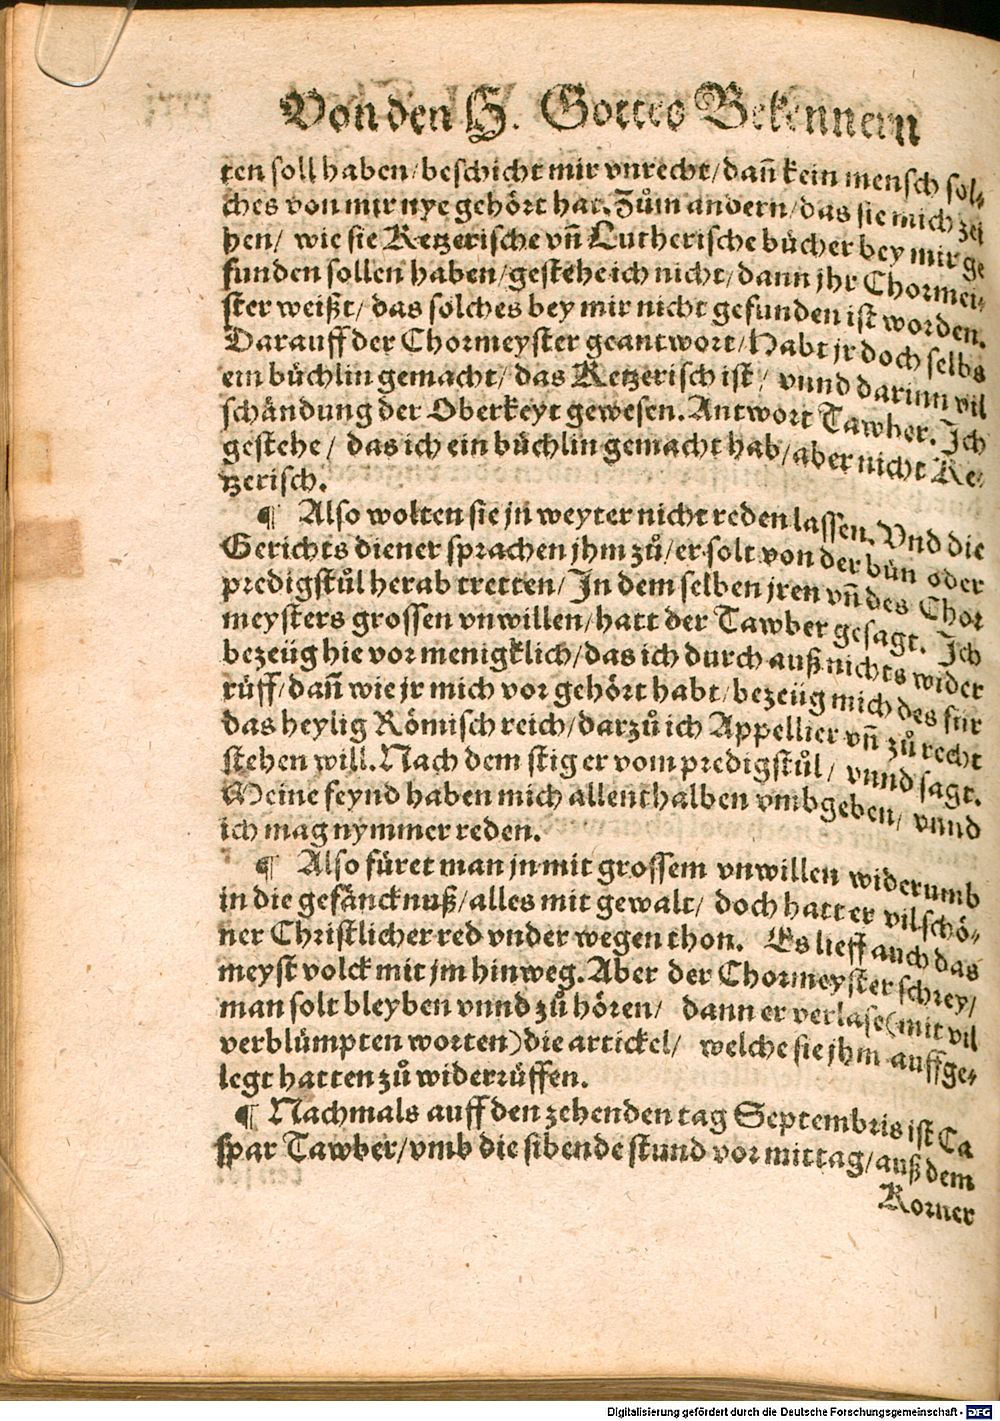 Von den H. Gottes Bekennern
ten soll haben/beschicht mir vnrecht/dañ kein mensch sol-
ches von mir nye gehört hat. Zům andern/das sie mich zei
hen/ wie sie Ketzerische vñ Lutherische bücher bey mir ge
funden sollen haben/gestehe ich nicht/dann jhr Chormei-
ster weißt/das solches bey mir nicht gefunden ist worden.
Darauff der Chormeyster geantwort/Habt jr doch selbs
ein büchlin gemacht/das Ketzerisch ist/ vnnd darinn vil
schändung der Oberkeyt gewesen. Antwort Tawber. Ich
gestehe/ das ich ein büchlin gemacht hab/aber nicht Ke-
tzerisch.
¶ Also wolten sie jn weyter nicht reden lassen. Vnd die
Gerichts diener sprachen jhm zů/er solt von der bün oder
predigstůl herab tretten/ In dem selben jren vñ des Chor
meysters grossen vnwillen/hatt der Tawber gesagt. Ich
bezeüg hie vor menigklich/das ich durch auß nichts wider
rüff/dañ wie jr mich vor gehört habt/bezeüg mich des für
das heylig Römisch reich/darzů ich Appellier vñ zů recht
stehen will. Nach dem stig er vom predigstůl/ vnnd sagt.
Meine feynd haben mich allenthalben vmbgeben/ vnnd
ich mag nymmer reden.
¶ Also füret man jn mit grossem vnwillen widerumb
in die gefäncknuß/alles mit gewalt/ doch hatt er vil schö-
ner Christlicher red vnder wegen thon. Es lieff auch das
meyst volck mit jm hinweg. Aber der Chormeyster schrey/
man solt bleyben vnnd zů hören/ dann er verlase(mit vil
verblümpten worten)die artickel/ welche sie jhm auffge-
legt hatten zů widerrüffen.
¶ Nachmals auff den zehenden tag Septembris ist Ca
spar Tawber/vmb die sibende stund vor mittag/auß dem
Korner
Digitalisierung gefördert durch die Deutsche Forschungsgemeinschaft - DFG